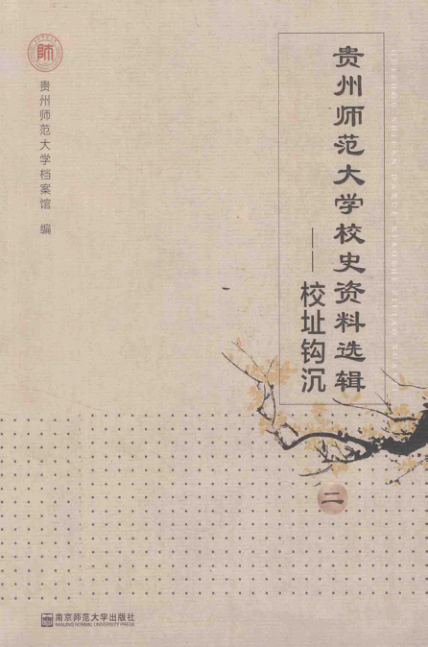 贵州师范大学校史资料选辑
——校址钩沉
二
師
贵州师范大学档案馆 编
南京师范大学出版社
NANJING NORMAL UNIVERSITY PRESS